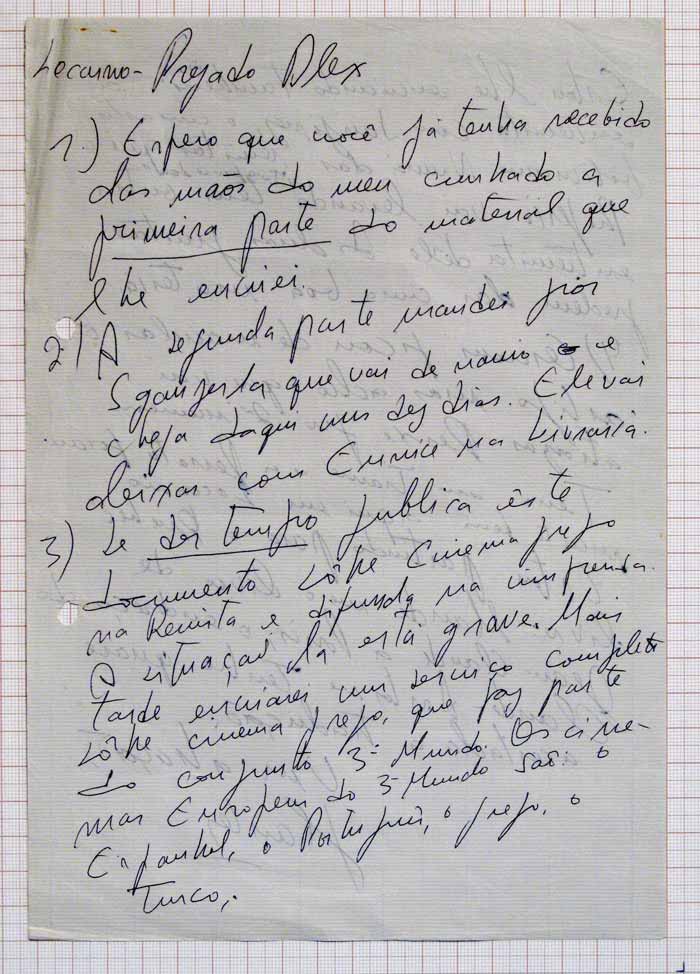 Locarno - Prezado Alex
1.) Espero que você já tenha recebido
das mãos do meu cunhado a
primeira parte do material que
lhe enviei.
2.) A segunda parte mandei por
Sganzerla que vai de navio e
chega daqui uns dez dias. Ele vai
deixar com Eunice na Livraria.
3) Se der tempo publica êste
documento sôbre Cinema grego
na Revista e difunda na imprensa.
A situação lá está grave. Mais
tarde enviarei um serviço completo
sôbre cinema grego, que faz parte
do conjunto 3º Mundo. Os cine-
mas Europeus do 3º Mundo são: o
Espanhol, o Português, o grego, o
Turco,.